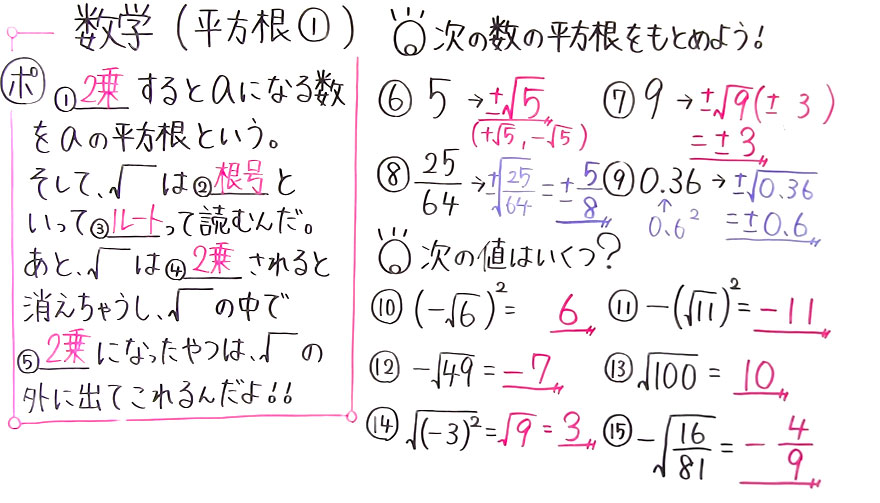 数学（平方根①）
ポ ①2乗するとaになる数
をaの平方根という。
そして、√ は②根号と
いって③ルートって読むんだ。
あと、√ は④2乗されると
消えちゃうし、√ の中で
⑤2乗になったやつは、√ の
外に出てこれるんだよ!!
次の数の平方根をもとめよう!
⑥ 5 →±√5
(+√5, -√5)
⑦ 9 →±√9(± 3 )
=±3
⑧ 25/64 →±√25/64 =±5/8
⑨ 0.36 →±√0.36
↑
0.6²
=±0.6
次の値はいくつ?
⑩ (-√6)²= 6
⑪ -(√11)²= -11
⑫ -√49 = -7
⑬ √100 = 10
⑭ √(-3)² =√9 = 3
⑮ -√16/81 = - 4/9